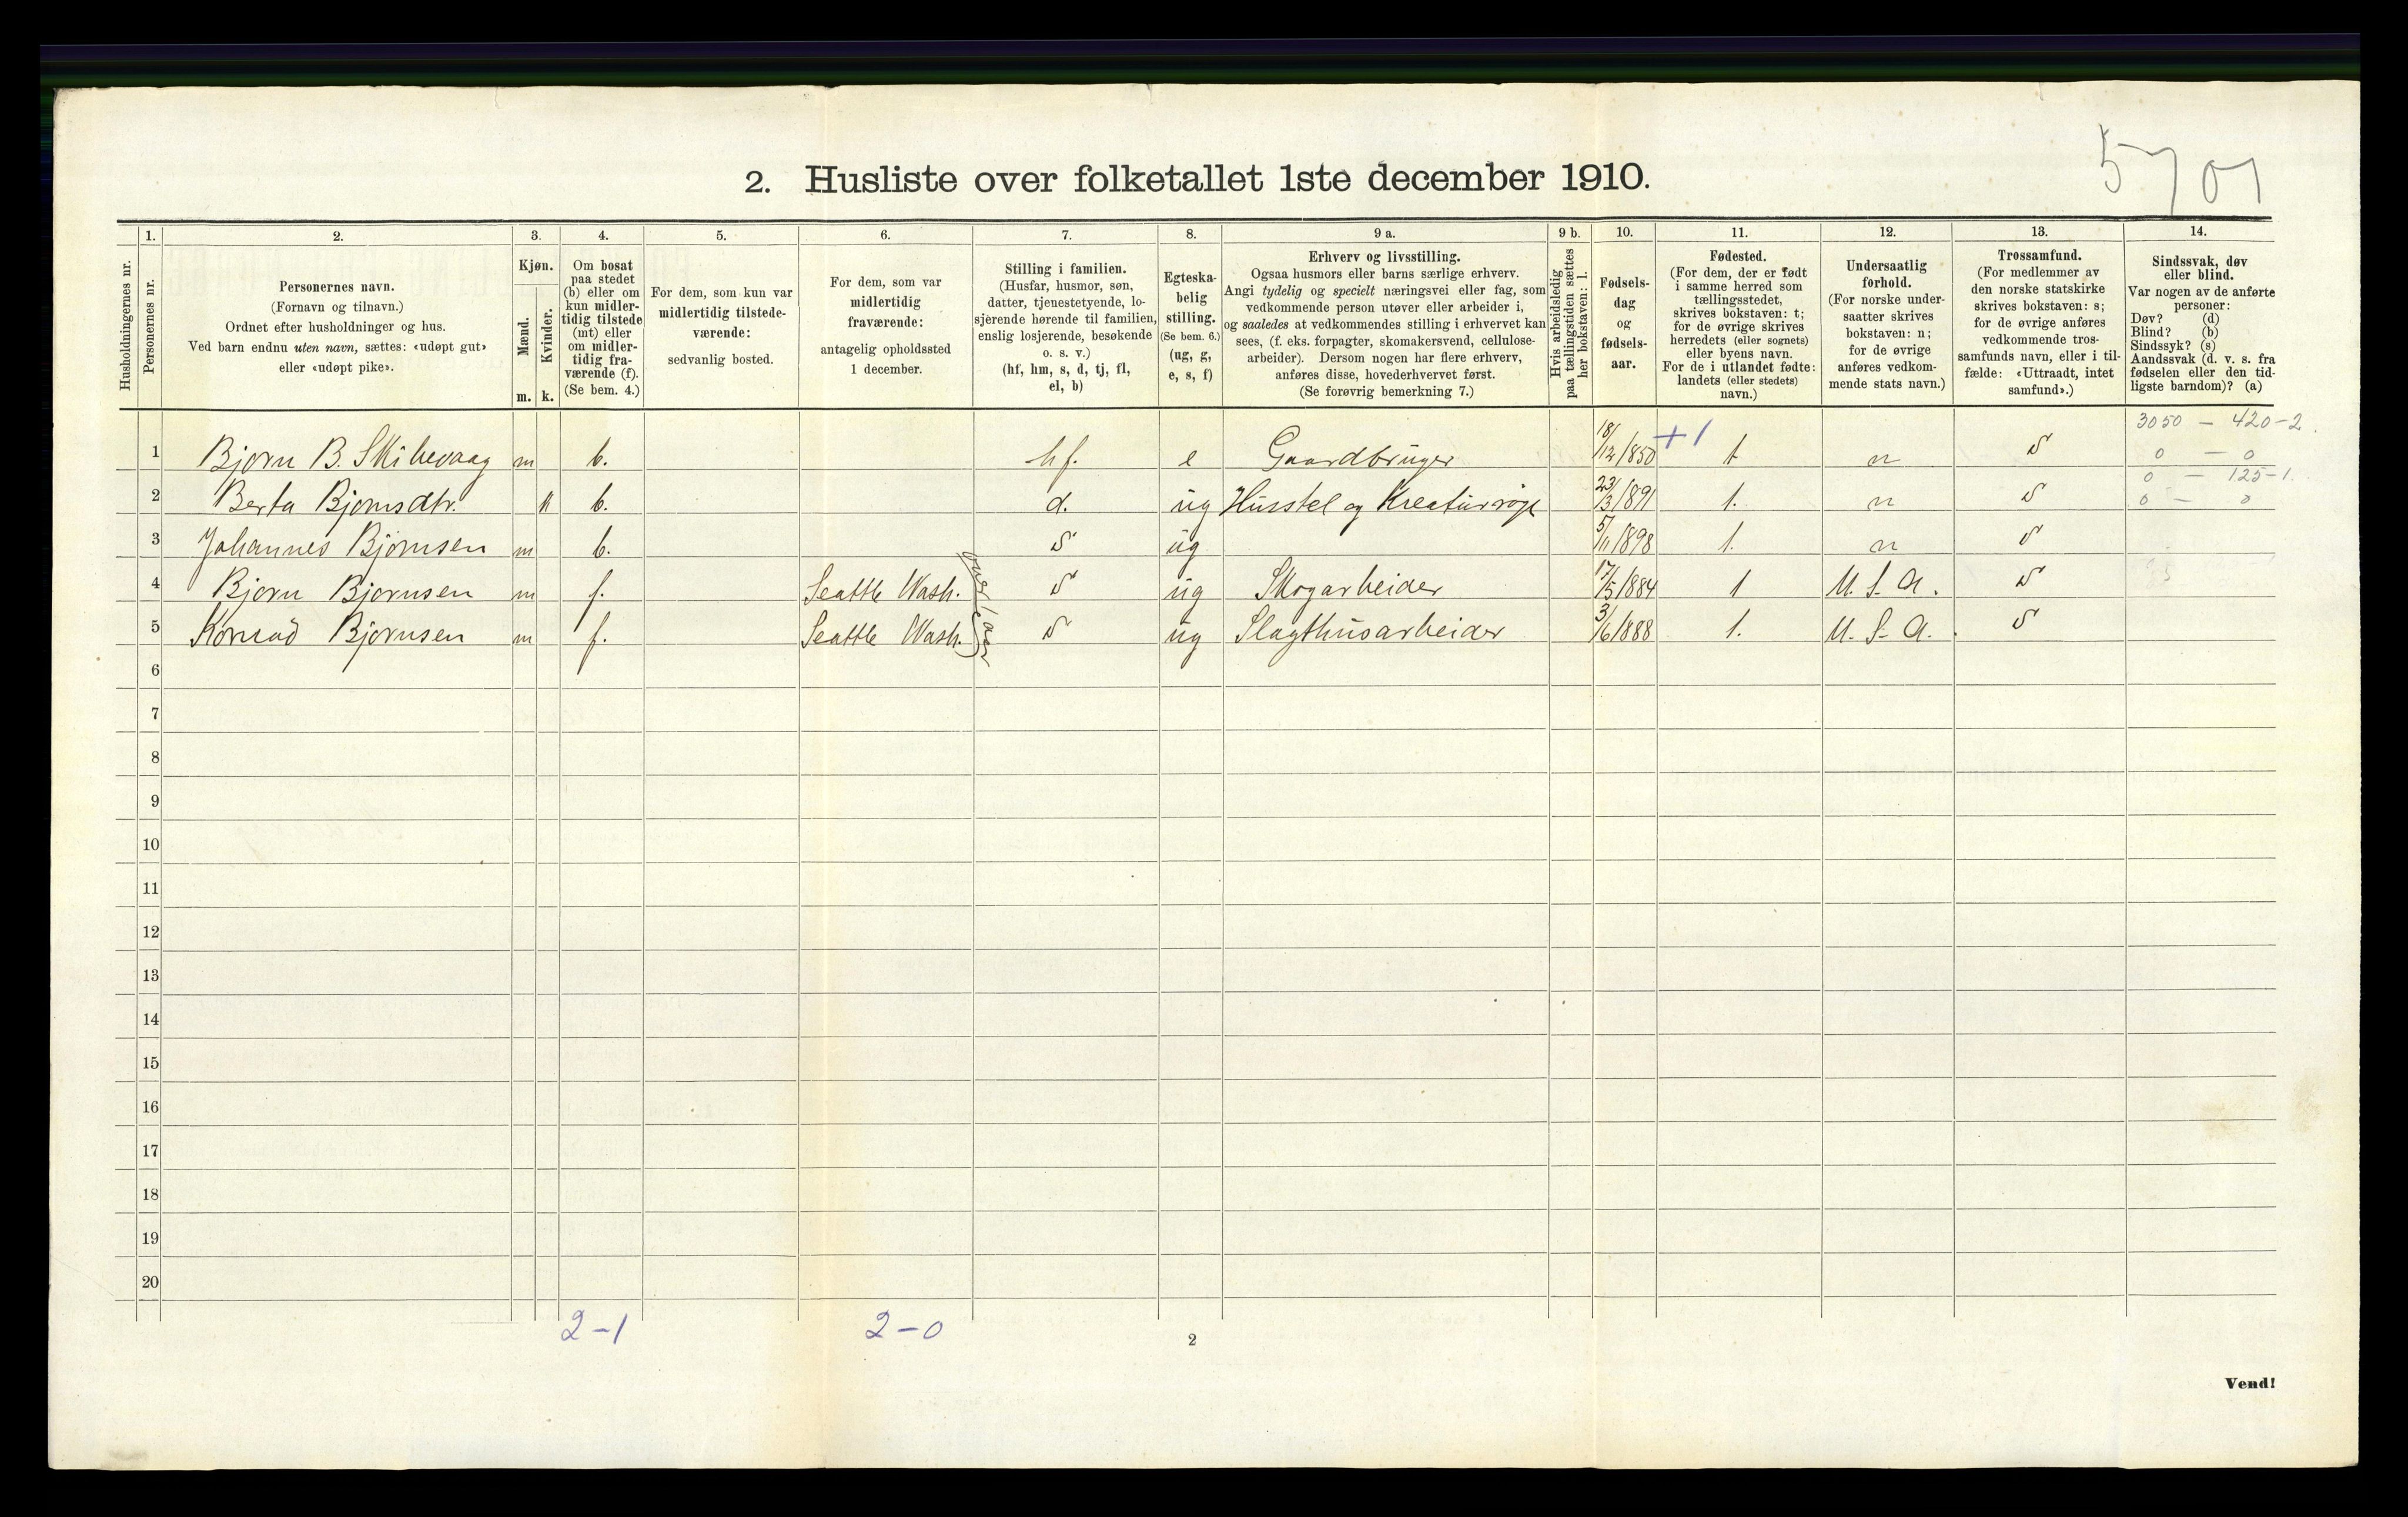 5701
2. Husliste over folketallet 1ste december 1910.
Husholdningernes nr.
1. Personernes nr.
2. Personernes navn.
(Fornavn og tilnavn.)
Ordnet efter husholdninger og hus.
Ved barn endnu uten navn, sættes: «udøpt gut»
eller «udøpt pike».
3. Kjøn.
Mænd. m.
Kvinder. k.
4. Om bosat
paa stedet
(b) eller om
kun midler-
tidig tilstede
(mt) eller
om midler-
tidig fra-
værende (f).
(Se bem. 4.)
5. For dem, som kun var
midlertidig tilstede-
værende:
sedvanlig bosted.
6. For dem, som var
midlertidig
fraværende:
antagelig opholdssted
1 december.
7. Stilling i familien.
(Husfar, husmor, søn,
datter, tjenestetyende, lo-
sjerende hørende til familien,
enslig losjerende, besøkende
o. s. v.)
(hf, hm, s, d, tj, fl,
el, b)
8. Egteska-
belig
stilling.
(Se bem. 6.)
(ug, g,
e, s, f)
9 a. Erhverv og livsstilling.
Ogsaa husmors eller barns særlige erhverv.
Angi tydelig og specielt næringsvei eller fag, som
vedkommende person utøver eller arbeider i,
og saaledes at vedkommendes stilling i erhvervet kan
sees, (f. eks. forpagter, skomakersvend, cellulose-
arbeider). Dersom nogen har flere erhverv,
anføres disse, hovederhvervet først.
(Se forøvrig bemerkning 7.)
9 b. Hvis arbeidsledig
paa tællingstiden sættes
her bokstaven: l.
10. Fødsels-
dag
og
fødsels-
aar.
11. Fødested.
(For dem, der er født
i samme herred som
tællingsstedet,
skrives bokstaven: t;
for de øvrige skrives
herredets (eller sognets)
eller byens navn.
For de i utlandet fødte:
landets (eller stedets)
navn.)
12. Undersaatlig
forhold.
(For norske under-
saatter skrives
bokstaven: n;
for de øvrige
anføres vedkom-
mende stats navn.)
13. Trossamfund.
(For medlemmer av
den norske statskirke
skrives bokstaven: s;
for de øvrige anføres
vedkommende tros-
samfunds navn, eller i til-
fælde: «Uttraadt, intet
samfund».)
14. Sindssvak, døv
eller blind.
Var nogen av de anførte
personer:
Døv? (d)
Blind? (b)
Sindssyk? (s)
Aandssvak (d. v. s. fra
fødselen eller den tid-
ligste barndom)? (a)
3050 - 420-2.
0 - 0
0 - 125-1.
0 - 0
1 Bjorn B. Skibevaag m b. hf. e Gaardbruger 18/12 1850 +1 t n s
2 Berta Bjornsdtr. k b. d. ug Husstel og Kreaturrøgt 23/3 1891 t. n s
3 Johannes Bjornsen m b. s ug 5/11 1898 t. n s
4 Bjorn Bjornsen m f. Seattle Wash. s ug Skogarbeider 17/5 1884 t U. S. A. s
over 1 aar
5 Konrad Bjornsen m f. Seattle Wash. s ug Slagthusarbeider 3/6 1888 t. U. S. A. s
6
7
8
9
10
11
12
13
14
15
16
17
18
19
20
2-1 2-0
2
Vend!